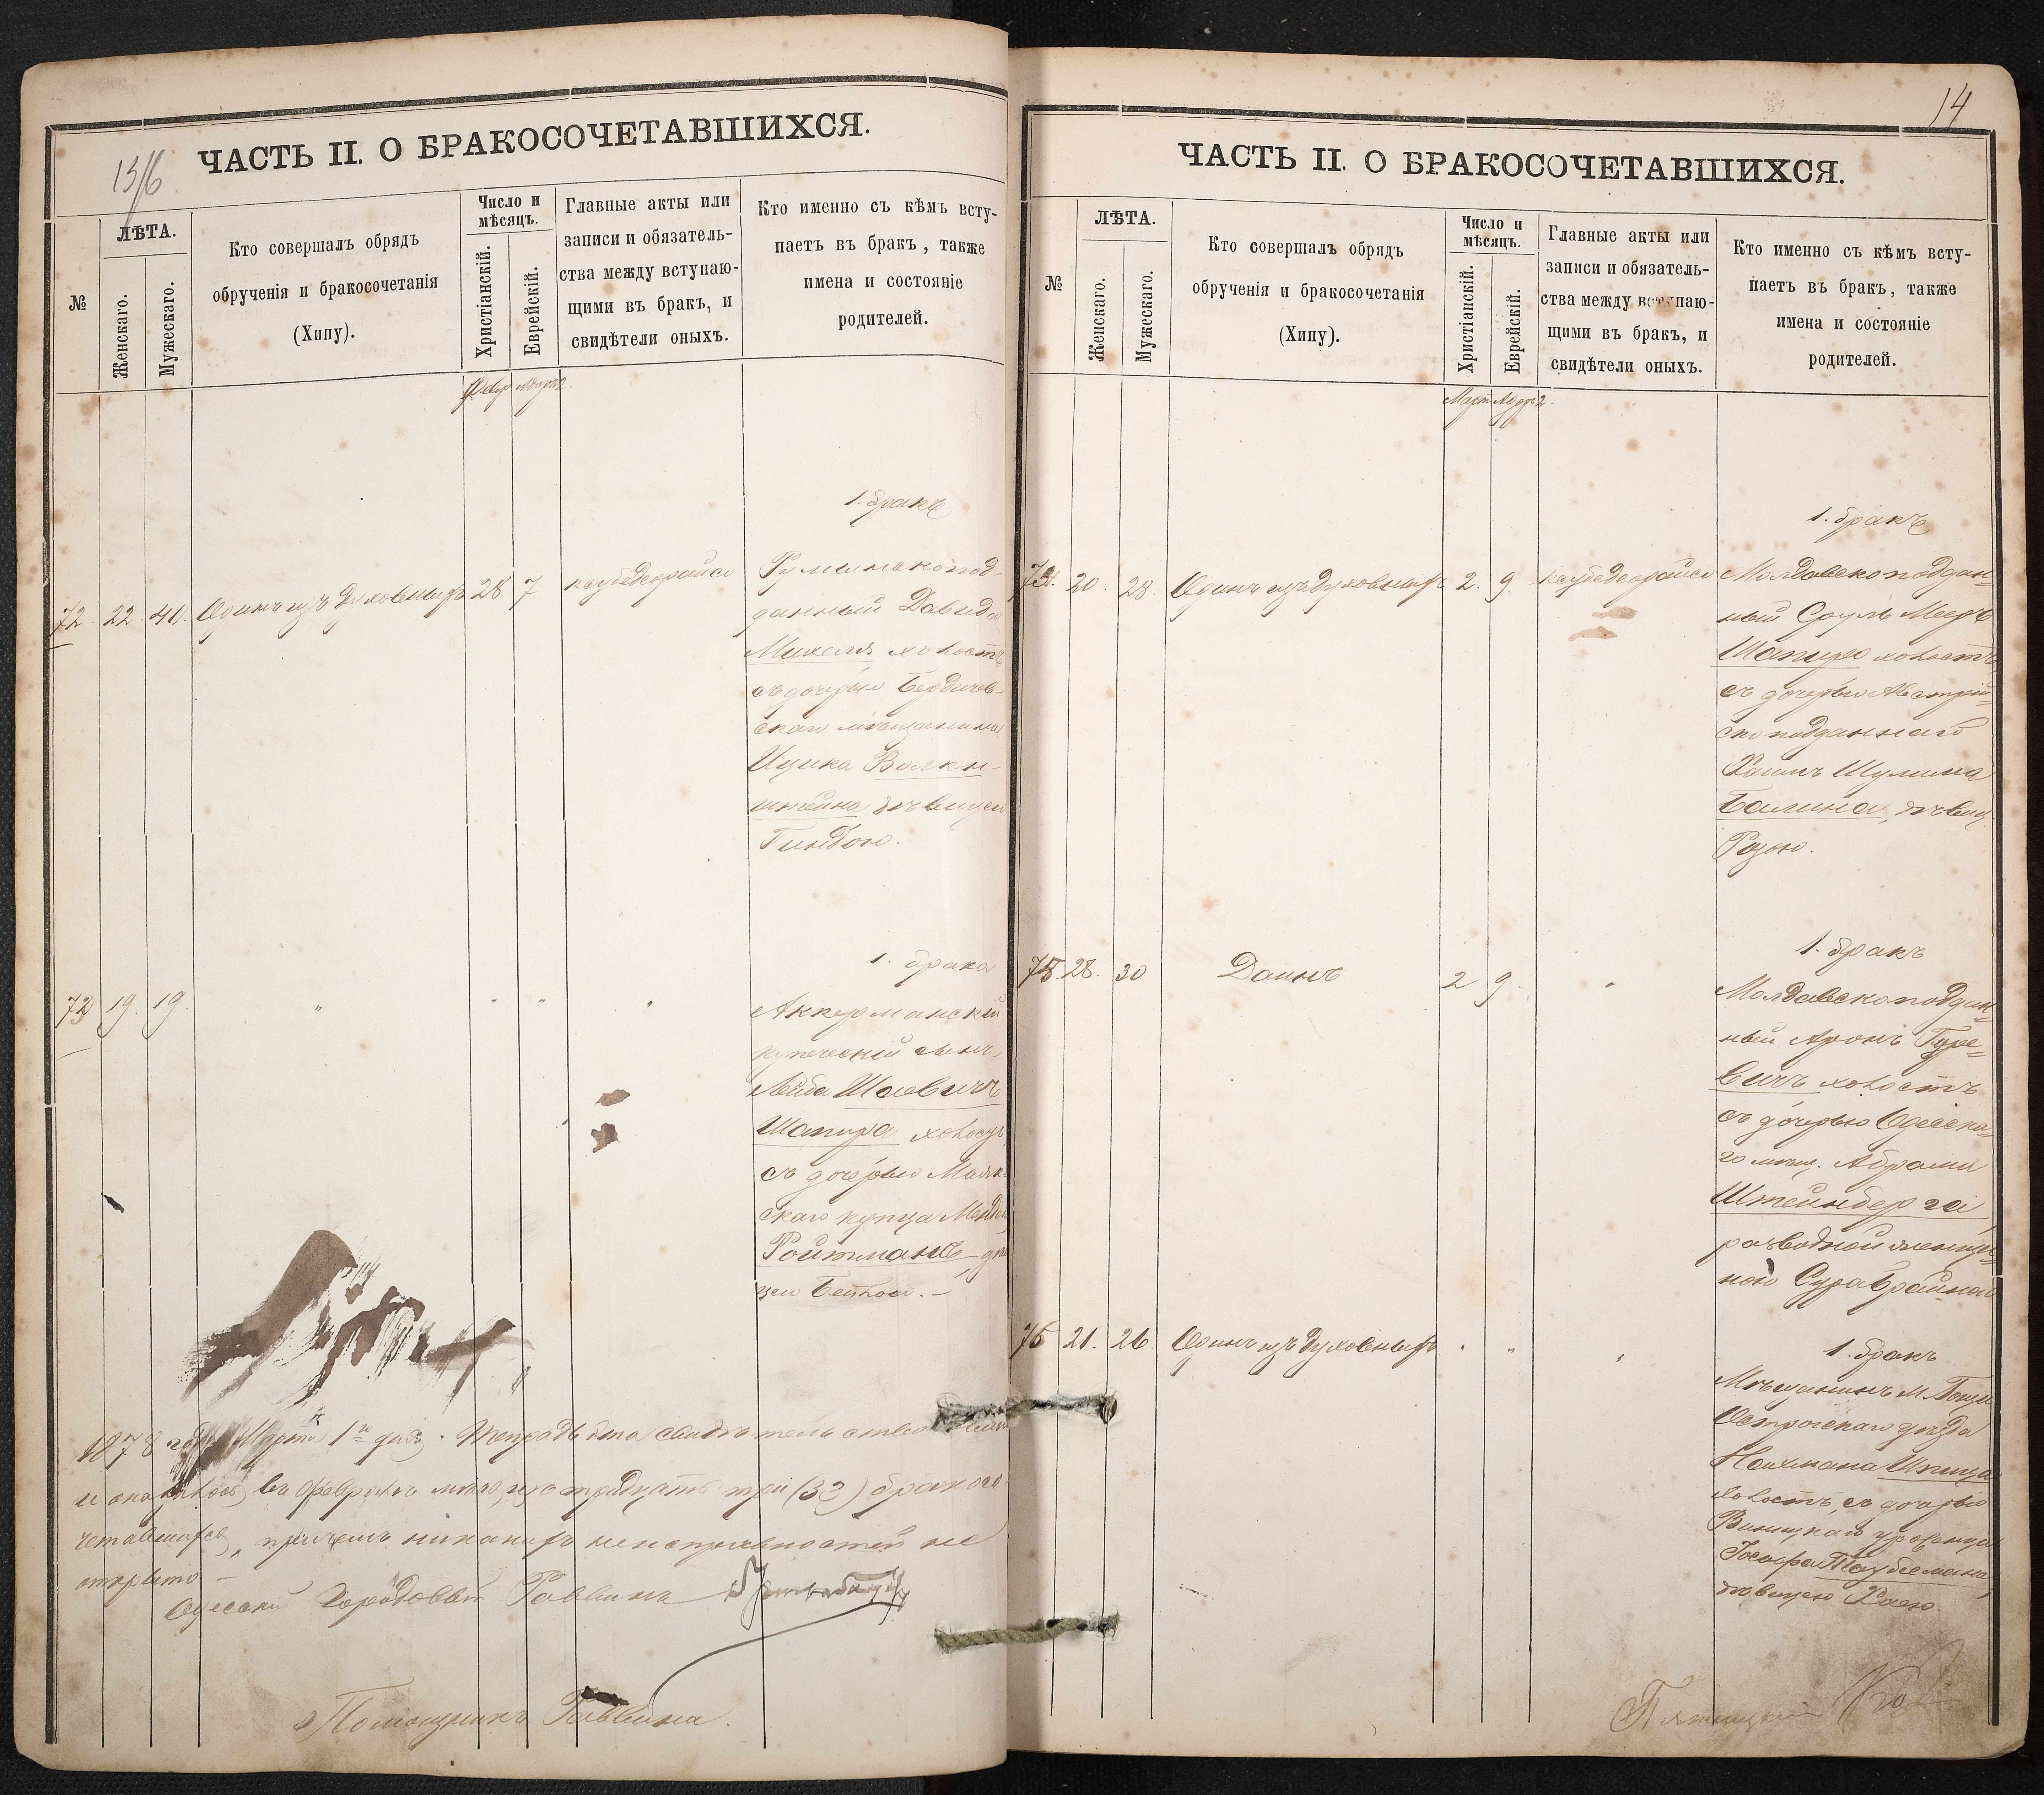 13/6
ЧАСТЬ II. О БРАКОСОЧЕТАВШИХСЯ.
№
ЛѢТА.
Женскаго.
Мужескаго.
Кто совершалъ обрядъ
обрученія и бракосочетанія
(Хипу).
Число и
мѣсяцъ.
Христіанскій.
Еврейскій.
Главные акты или
записи и обязатель-
ства между вступаю-
щими въ бракъ, и
свидѣтели оныхъ.
Кто именно съ кѣмъ всту-
паетъ въ бракъ, также
имена и состояніе
родителей.
1. бракъ
72. 22. 40. Одинъ изъ духовныхъ 28 7
Румынскопод-
данный Давидъ
Михеля холостъ
съ дочерью Бердичев-
скаго мѣщанина
Ицика Волкн-
штейна дѣвицею
Гиндою.
73 19. 19. " " " "
1. брака
Аккерманскій
купеческій сынъ
Лейба Шаевичъ
Шапира холостъ
съ дочерью Маяк-
скаго купца Менд
Ройтманъ, дѣв
цею Бейлою. –
1878 года Марта 1го дня. Тетрадь эта свидѣтельствована
и оказалось въ Февралѣ мѣсяцѣ тридцать три (33) бракосо-
четавшихся, причемъ никакихъ неисправностей не
открыто –
Одесскій Городовый Раввинъ
Помощникъ Раввина.
14
ЧАСТЬ II. О БРАКОСОЧЕТАВШИХСЯ.
№
ЛѢТА.
Женскаго.
Мужескаго.
Кто совершалъ обрядъ
обрученія и бракосочетанія
(Хипу).
Число и
мѣсяцъ.
Христіанскій.
Еврейскій.
Главные акты или
записи и обязатель-
ства между вступаю-
щими въ бракъ, и
свидѣтели оныхъ.
Кто именно съ кѣмъ всту-
паетъ въ бракъ, также
имена и состояніе
родителей.
Мартъ Адаръ 2.
1. бракъ
20. 28. Одинъ изъ духовныхъ 2. 9.
Молдавскоподдан-
ный Сруль Мееръ
Шапиро холостъ
съ дочерью Австрій-
скоподданнаго
Хаимъ Шулима
Балина, дѣвиц.
Розою.
1. бракъ
75. 28. 30 Даинъ 2 9. "
Молдавскоподдан-
ный Аронъ Гуре-
вичъ холостъ
съ дочерью Одесска-
го мѣщ. Абрама
Штейнберга,
разводной женщи-
ною Сура Брайною
1. бракъ
76 21. 26. Одинъ изъ духовныхъ " " "
Мѣщанинъ М.
Острогскаго уѣзда
Нахмана Шпица
холостъ, съ дочерью
Винницкаго уроженца
Іосифа Таубемана,
дѣвицею Хаею.